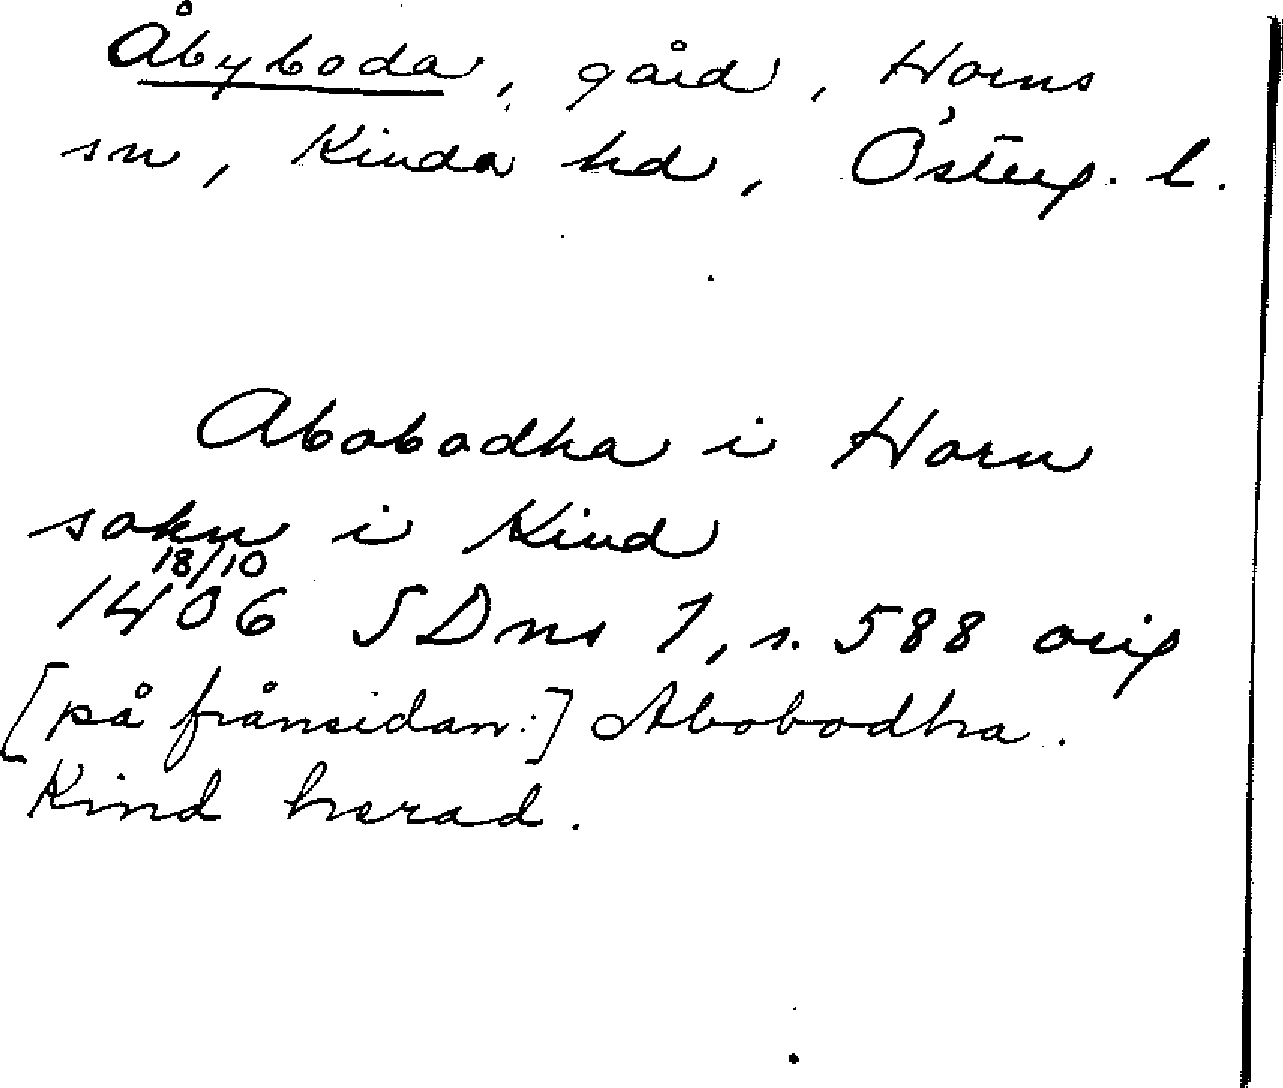 Åbyboda, gård, Horns
sn, Kinda hd, Österg. l.
Abobodha i Horn
sokn i Kind
18/10
1406 SDns 1, s. 588 orig
[på frånsidan:] Abobodha.
Kind herad.